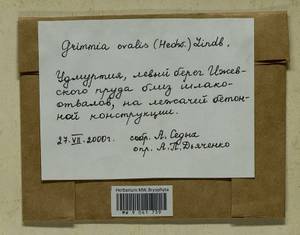 Grimmia ovalis (Hedw.) Lindb.
Удмуртия, левый берег Ижев-
ского пруда близ шлако-
отвалов, на лежачей бетон-
ной конструкции.
27.VII.2000г. собр. А. Седых
опр. А.П. Дьяченко
Herbarium MW, Bryophyta
MW 9 041 739